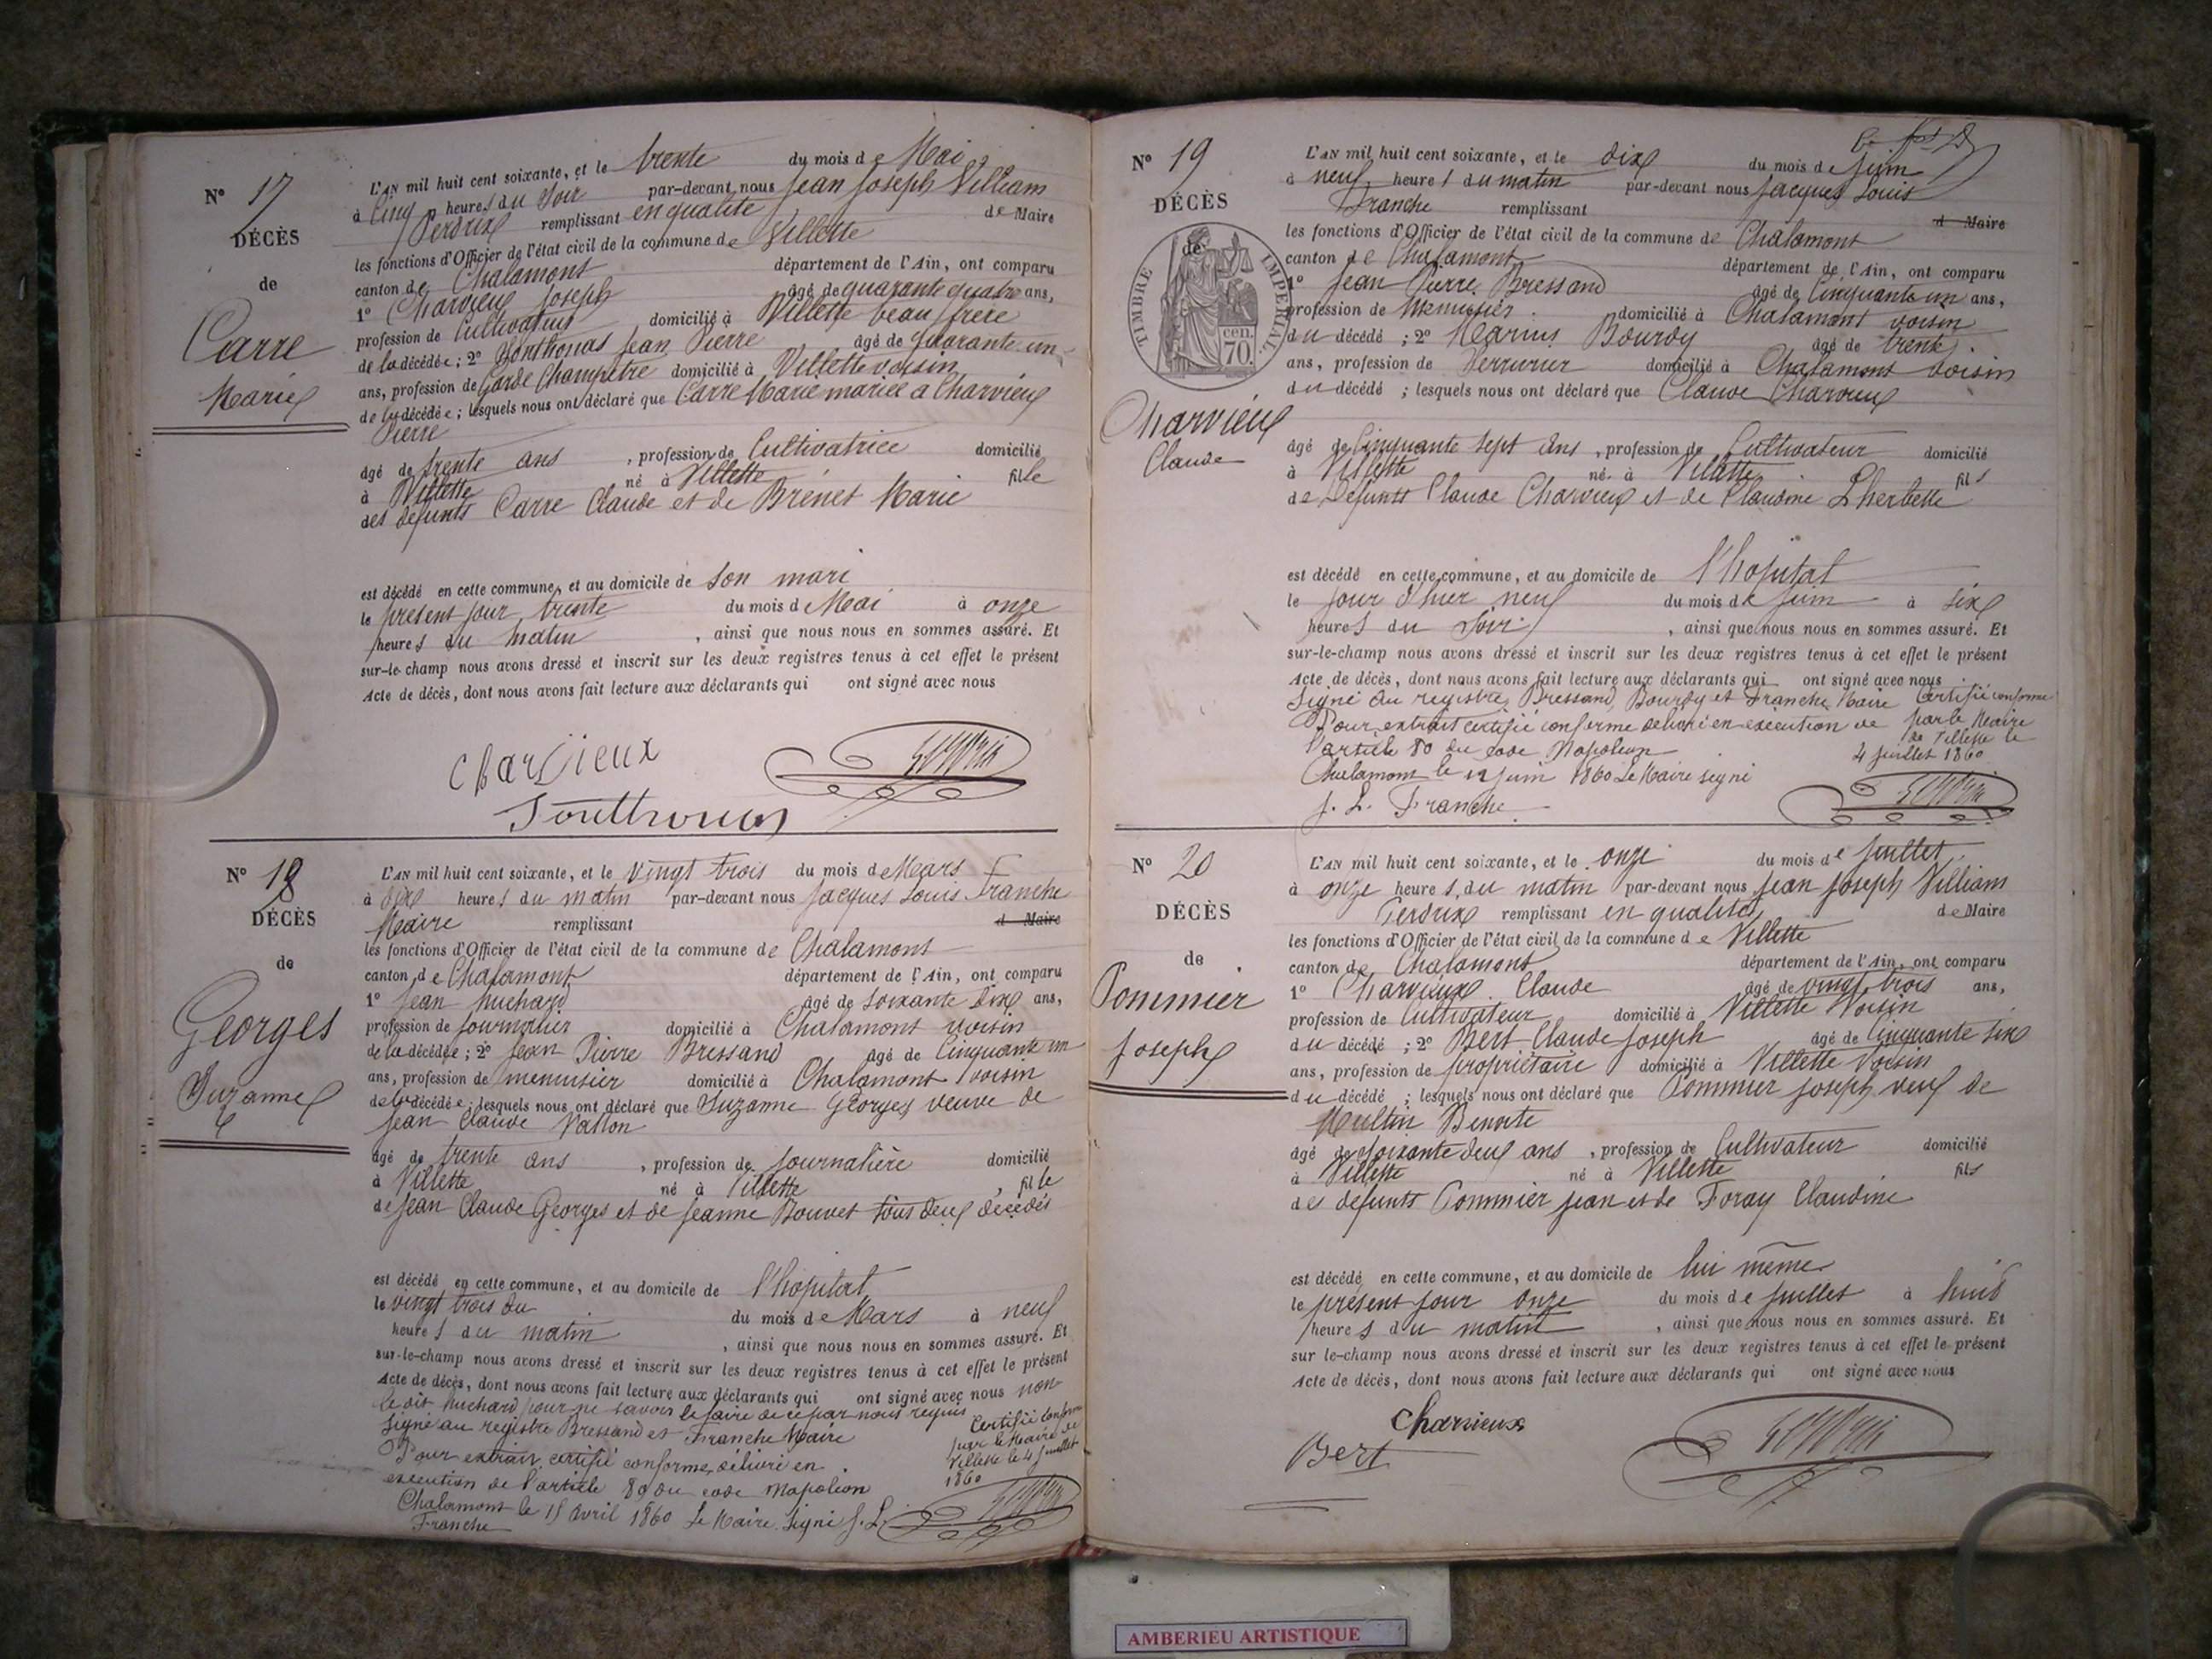 N° 17
DÉCÈS
de
Carre
Marie
L'AN mil huit cent soixante, et le trente du mois de Mai
à Cinq heures du Soir par-devant nous Jean Joseph Villiam
Perdrix remplissant en qualité de Maire
les fonctions d'Officier de l'état civil de la commune de Villette
canton de Chalamont département de l'Ain, ont comparu
1° Charvieux Joseph âgé de quarante quatre ans,
profession de Cultivateur domicilié à Villette beau frère
de la décédée ; 2° Jean Pierre âgé de quarante un
ans, profession de Garde Champêtre domicilié à Villette voisin
de la décédée ; lesquels nous ont déclaré que Carre Marie mariée à Charvieux
Pierre
âgé de trente ans , profession de Cultivatrice domicilié
à Villette né à Villette fille
des défunts Carre Claude et de Brenet Marie
est décédé en cette commune, et au domicile de son mari
le present jour trente du mois de Mai à onze
heures du matin , ainsi que nous nous en sommes assuré. Et
sur-le-champ nous avons dressé et inscrit sur les deux registres tenus à cet effet le présent
Acte de décès, dont nous avons fait lecture aux déclarants qui ont signé avec nous
Charvieux
N° 18
DÉCÈS
de
Georges
Suzanne
L'AN mil huit cent soixante, et le vingt trois du mois de Mars
à dix heures du matin par-devant nous Jacques Louis Franche
Maire remplissant d Maire
les fonctions d'Officier de l'état civil de la commune de Chalamont
canton de Chalamont département de l'Ain, ont comparu
1° Jean huchard âgé de soixante dix ans,
profession de journalier domicilié à Chalamont voisin
de la décédée ; 2° Jean Pierre Bressand âgé de Cinquante un
ans, profession de menuisier domicilié à Chalamont voisin
de la décédée ; lesquels nous ont déclaré que Suzanne Georges veuve de
Jean Claude
âgé de trente ans , profession de journalière domicilié
à Villette né à Villette , fille
de Jean Claude Georges et de Jeanne Bouvet tous deux décédés
est décédé en cette commune, et au domicile de l'hopital
le vingt trois du du mois de Mars à neuf
heures du matin , ainsi que nous nous en sommes assuré. Et
sur-le-champ nous avons dressé et inscrit sur les deux registres tenus à cet effet le présent
Acte de décès, dont nous avons fait lecture aux déclarants qui ont signé avec nous non
le dit huchard pour ne savoir le faire de ce par nous requis
signé au registre Bressand et Franche Maire
Pour extrait certifié conforme délivré en
execution de l'article 80 du code Napoléon
Chalamont le 15 Avril 1860 Le Maire signé J. L.
Franche
Certifié conforme
par le Maire de
Villette le 4 juillet
1860
N° 19
DÉCÈS
de
TIMBRE IMPERIAL
cen.
70.
Charvieux
Claude
L'AN mil huit cent soixante, et le dix du mois de Juin
à neuf heures du matin par-devant nous Jacques Louis
Franche remplissant d Maire
les fonctions d'Officier de l'état civil de la commune de Chalamont
canton de Chalamont département de l'Ain, ont comparu
1° Jean Pierre Bressand âgé de Cinquante un ans,
profession de Menuisier domicilié à Chalamont voisin
du décédé ; 2° Marius Bourdy âgé de trente
ans, profession de Serrurier domicilié à Chalamont voisin
du décédé ; lesquels nous ont déclaré que Claude Charvieux
âgé de Cinquante sept ans , profession de Cultivateur domicilié
à Villette né à Villette fils
de Defunts Claude Charvieux et de Claudine Lherbette
est décédé en cette commune, et au domicile de l'hopital
le jour d'hier neuf du mois de Juin à six
heures du soir , ainsi que nous nous en sommes assuré. Et
sur-le-champ nous avons dressé et inscrit sur les deux registres tenus à cet effet le présent
Acte de décès, dont nous avons fait lecture aux déclarants qui ont signé avec nous
Signé au registre Bressand, Bourdy et Franche Maire
Pour extrait certifié conforme délivré en execution de
l'article 80 du code Napoleon
Chalamont le 12 juin 1860 Le Maire signé
J. L. Franche
Certifié conforme
par le Maire
de Villette le
4 juillet 1860
N° 20
DÉCÈS
de
Pommier
Joseph
L'AN mil huit cent soixante, et le onze du mois de Juillet
à onze heures du matin par-devant nous Jean Joseph Villiam
Perdrix remplissant en qualité de Maire
les fonctions d'Officier de l'état civil de la commune de Villette
canton de Chalamont département de l'Ain, ont comparu
1° Charvieux Claude âgé de vingt trois ans,
profession de Cultivateur domicilié à Villette Voisin
du décédé ; 2° Bert Claude Joseph âgé de Cinquante six
ans, profession de propriétaire domicilié à Villette Voisin
du décédé ; lesquels nous ont déclaré que Pommier Joseph veuf de
Benoite
âgé de soixante deux ans , profession de Cultivateur domicilié
à Villette né à Villette fils
des defunts Pommier Jean et de Foray Claudine
est décédé en cette commune, et au domicile de lui même
le présent jour onze du mois de juillet à huit
heures du matin , ainsi que nous nous en sommes assuré. Et
sur le-champ nous avons dressé et inscrit sur les deux registres tenus à cet effet le présent
Acte de décès, dont nous avons fait lecture aux déclarants qui ont signé avec nous
Charvieux
Bert
AMBERIEU ARTISTIQUE